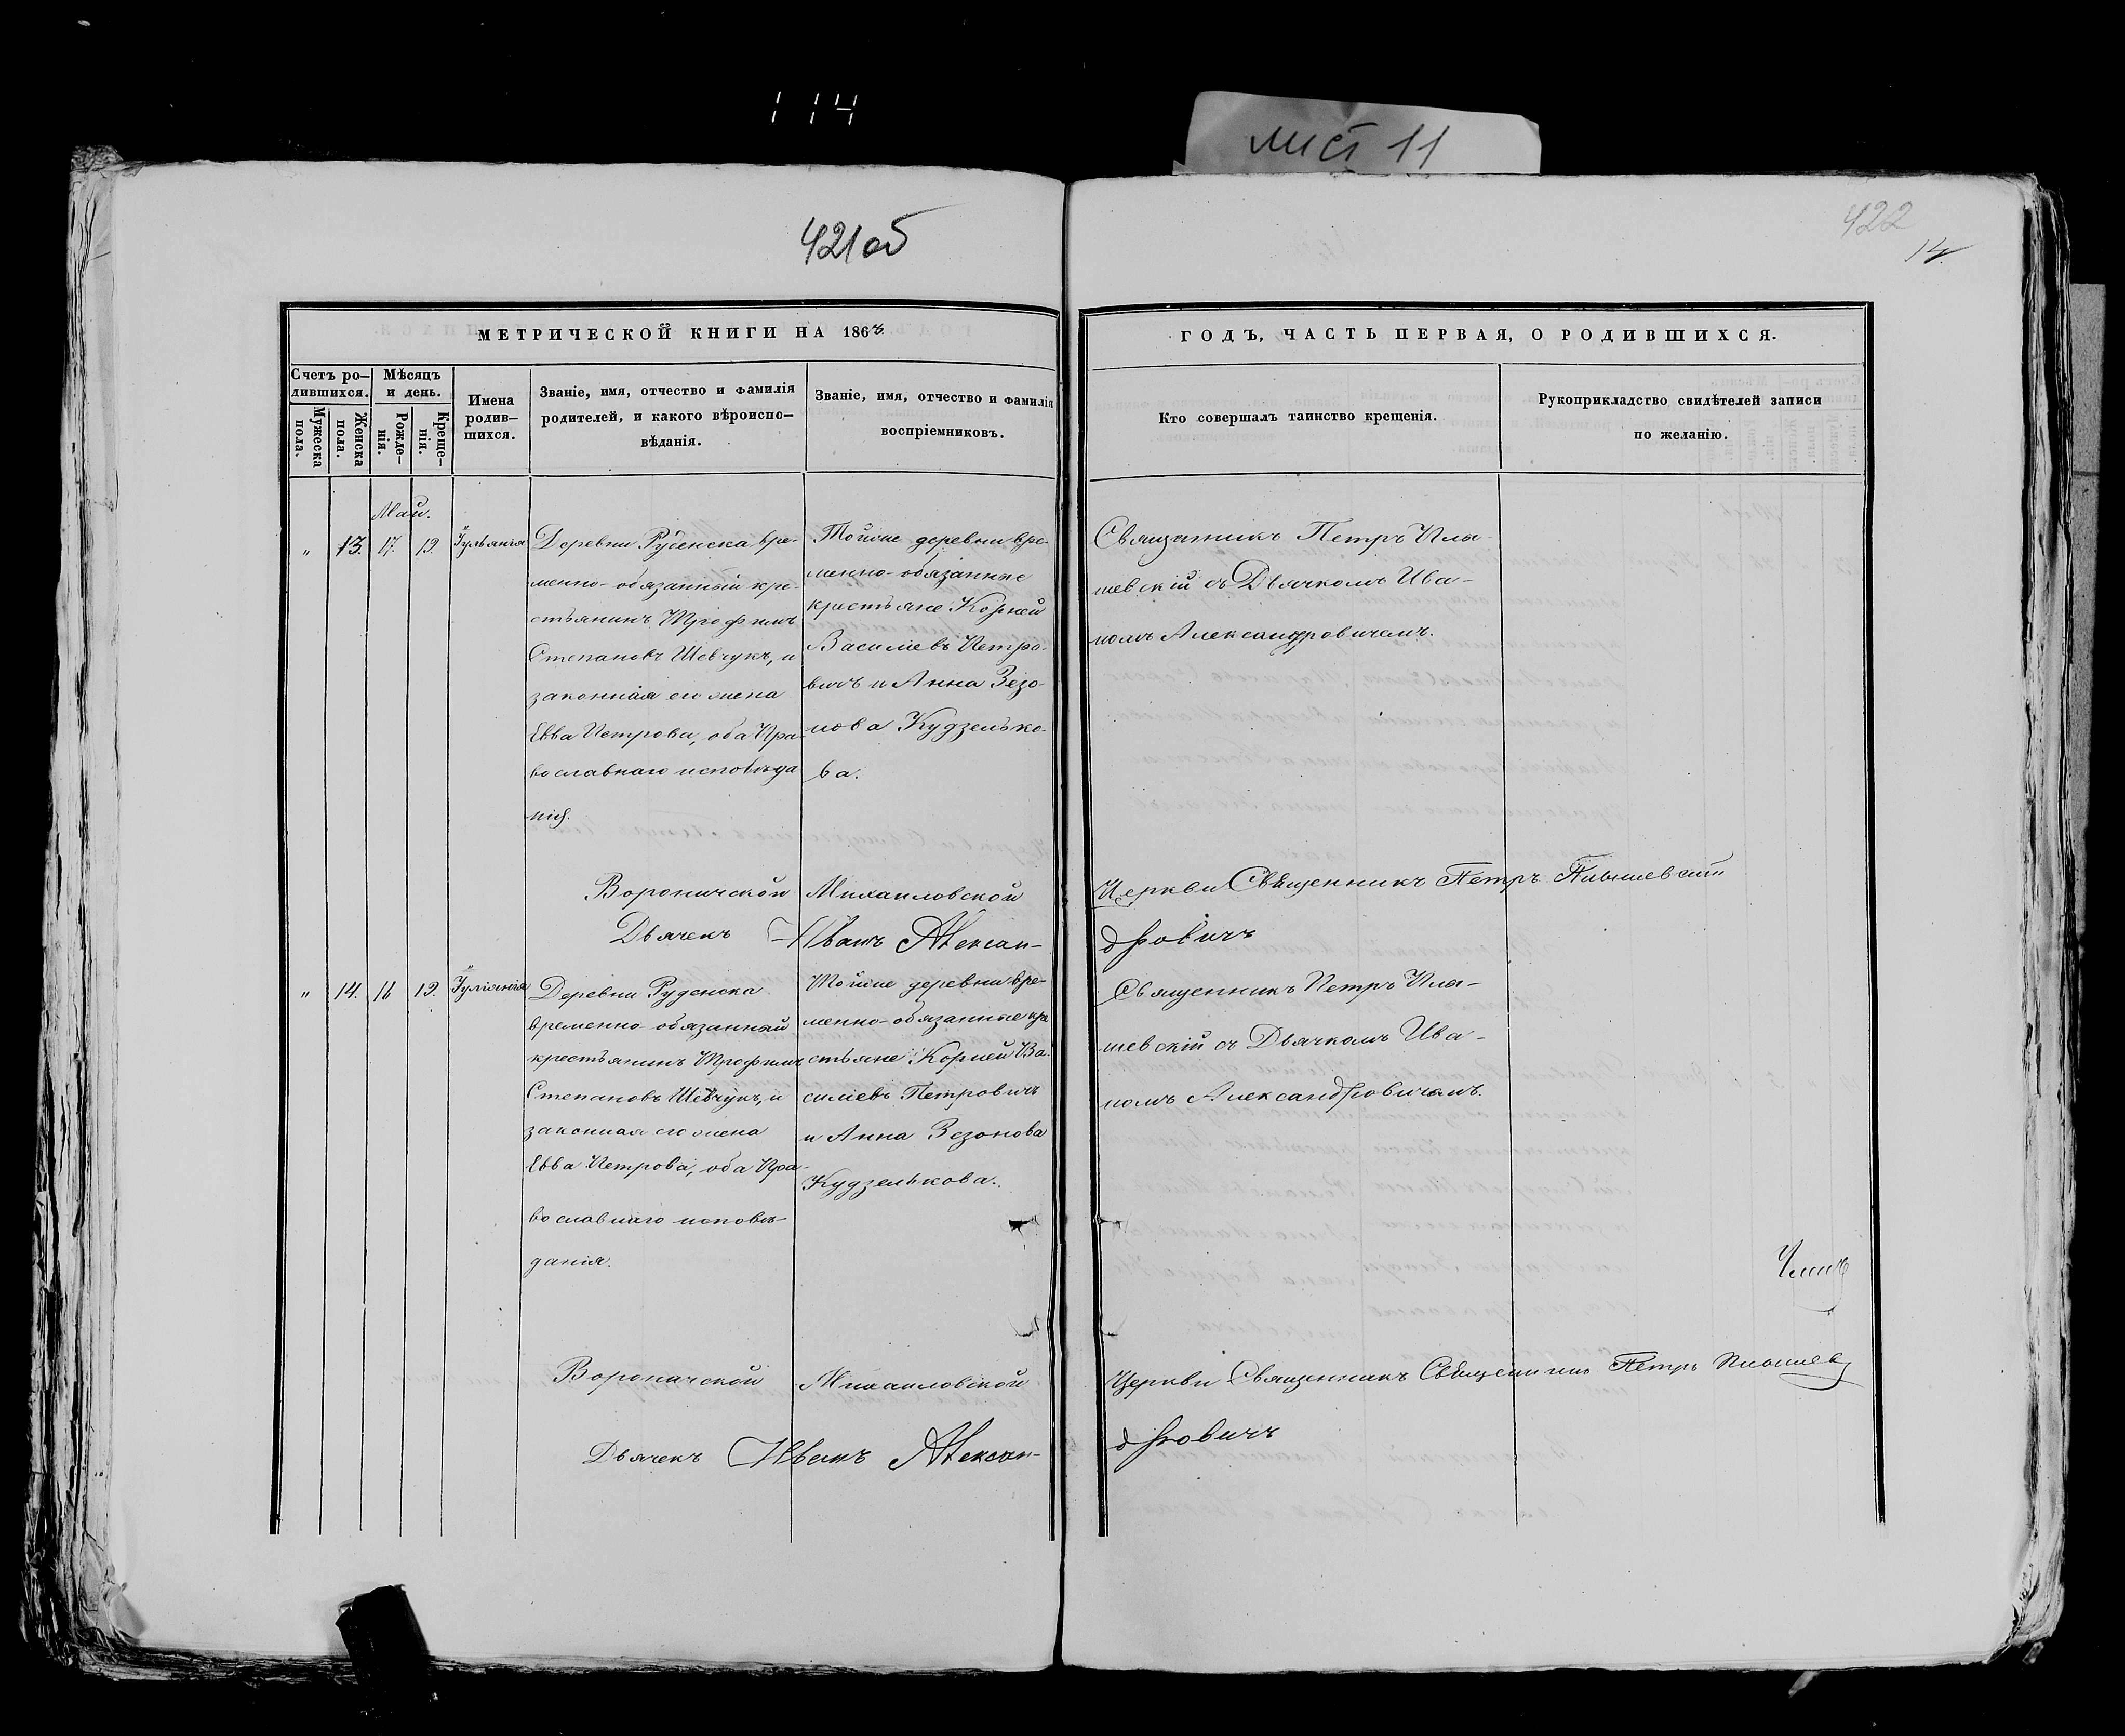 114
лист 11
421об
422
14
МЕТРИЧЕСКОЙ КНИГИ НА 1868
ГОДЪ, ЧАСТЬ ПЕРВАЯ, О РОДИВШИХСЯ.
Счетъ ро-
дившихся.
Мужеска
пола.
Женска
пола.
Мѣсяцъ
и день.
Рожде-
нія.
Креще-
нія.
Имена
родив-
шихся.
Званіе, имя, отчество и фамилія
родителей, и какого вѣроиспо-
вѣданія.
Званіе, имя, отчество и фамилія
воспріемниковъ.
Кто совершалъ таинство крещенія.
Рукоприкладство свидѣтелей записи
по желанію.
Маи.
" 13. 17. 19.
Іуліанія
Деревни Руденска вре-
менно-обязанный кре-
стьянинъ Трофимъ
Степановъ Шевчукъ, и
законная его жена
Евва Петрова, оба Пра-
вославнаго исповѣда
нія.
Тойже деревни вре-
менно-обязанные
крестьяне Корней
Василіевъ Петро-
вичъ и Анна Зезо-
нова Кудзелько-
ва.
Священникъ Петръ
шевскій съ Дьячкомъ Ива-
номъ Александровичемъ.
Вороничской Михаиловской Церкви Священникъ Петръ
Дьячекъ Иванъ Алексан-
дровичъ
" 14. 18 19.
Іуліанія
Деревни Руденска
временно-обязанный
крестьянинъ Трофимъ
Степановъ Шевчукъ, и
законная его жена
Евва Петрова, оба Пра-
вославнаго исповѣ-
данія.
Тойже деревни вре-
менно-обязанные кре
стьяне Корней Ва-
силіевъ Петровичъ
и Анна Зезонова
Кудзелькова.
Священникъ Петръ
шевскій съ Дьячкомъ Ива-
номъ Александровичемъ.
Вороничской Михаиловской Церкви Священникъ Священникъ Петръ
Дьячекъ Иванъ Алексан-
дровичъ